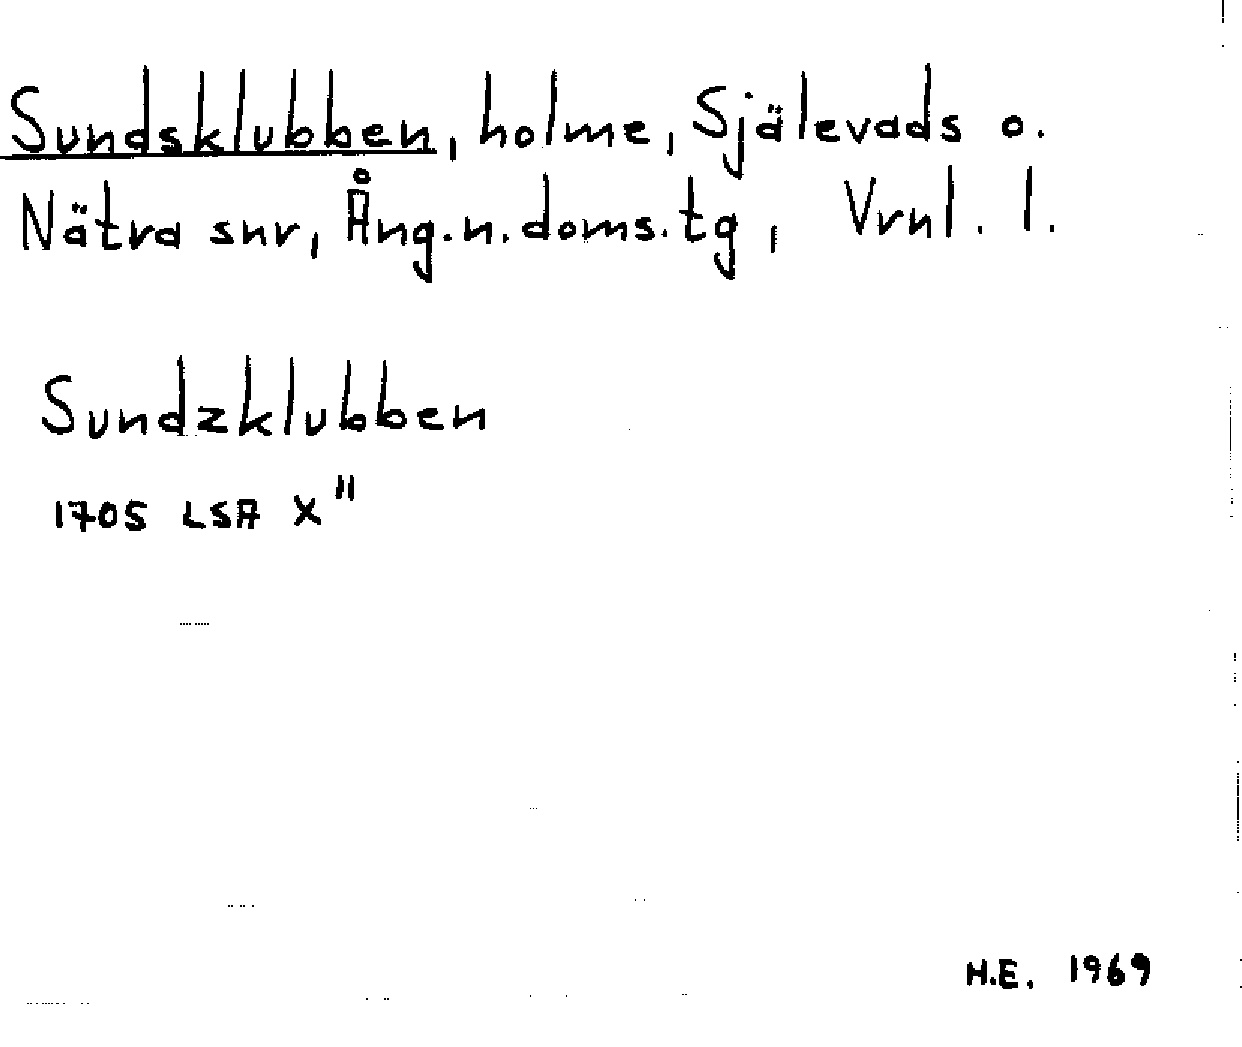 Sundsklubben, holme, Själevads o.
Nätra snr, Ång.n.doms.tg, Vrnl. l.
Sundzklubben
1705 LSA X"
H.E. 1969